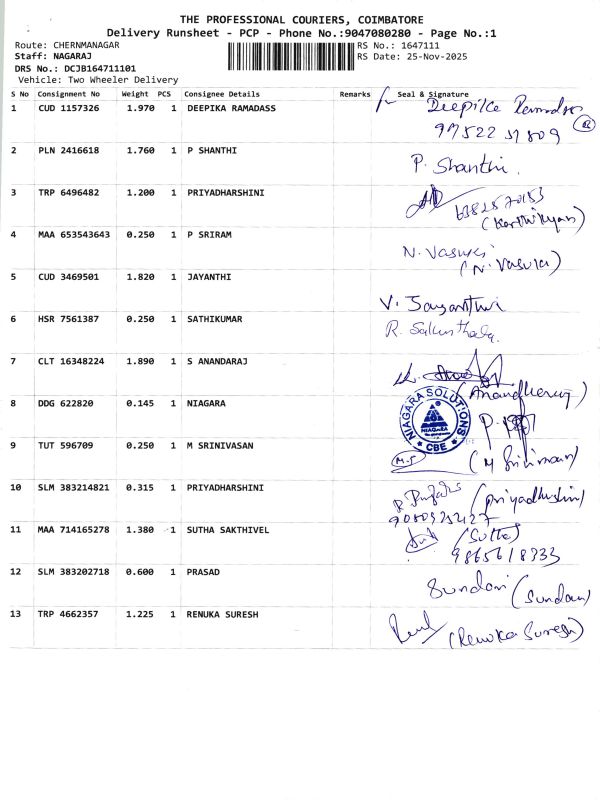 THE PROFESSIONAL COURIERS, COIMBATORE
Delivery Runsheet - PCP - Phone No.:9047080280 - Page No.:1
Route: CHERNMANAGAR RS No.: 1647111
Staff: NAGARAJ RS Date: 25-Nov-2025
DRS No.: DCJB164711101
Vehicle: Two Wheeler Delivery
S No Consignment No Weight PCS Consignee Details Remarks Seal & Signature
1 CUD 1157326 1.970 1 DEEPIKA RAMADASS Deepika
97522 37809
2 PLN 2416618 1.760 1 P SHANTHI P. Shanthi.
3 TRP 6496482 1.200 1 PRIYADHARSHINI
(Karthikyan)
4 MAA 653543643 0.250 1 P SRIRAM N. Vasuki
(N. Vasuki)
5 CUD 3469501 1.820 1 JAYANTHI
V. Jayanthi
6 HSR 7561387 0.250 1 SATHIKUMAR R. Sakunthala.
7 CLT 16348224 1.890 1 S ANANDARAJ
8 DDG 622820 0.145 1 NIAGARA NIAGARA SOLUTIONS
NIAGARA
CBE
9 TUT 596709 0.250 1 M SRINIVASAN
M.S
10 SLM 383214821 0.315 1 PRIYADHARSHINI (Priyadharshini)
11 MAA 714165278 1.380 1 SUTHA SAKTHIVEL (Sutha)
9865618333
12 SLM 383202718 0.600 1 PRASAD Sundari (Sundari)
13 TRP 4662357 1.225 1 RENUKA SURESH (Renuka Suresh)